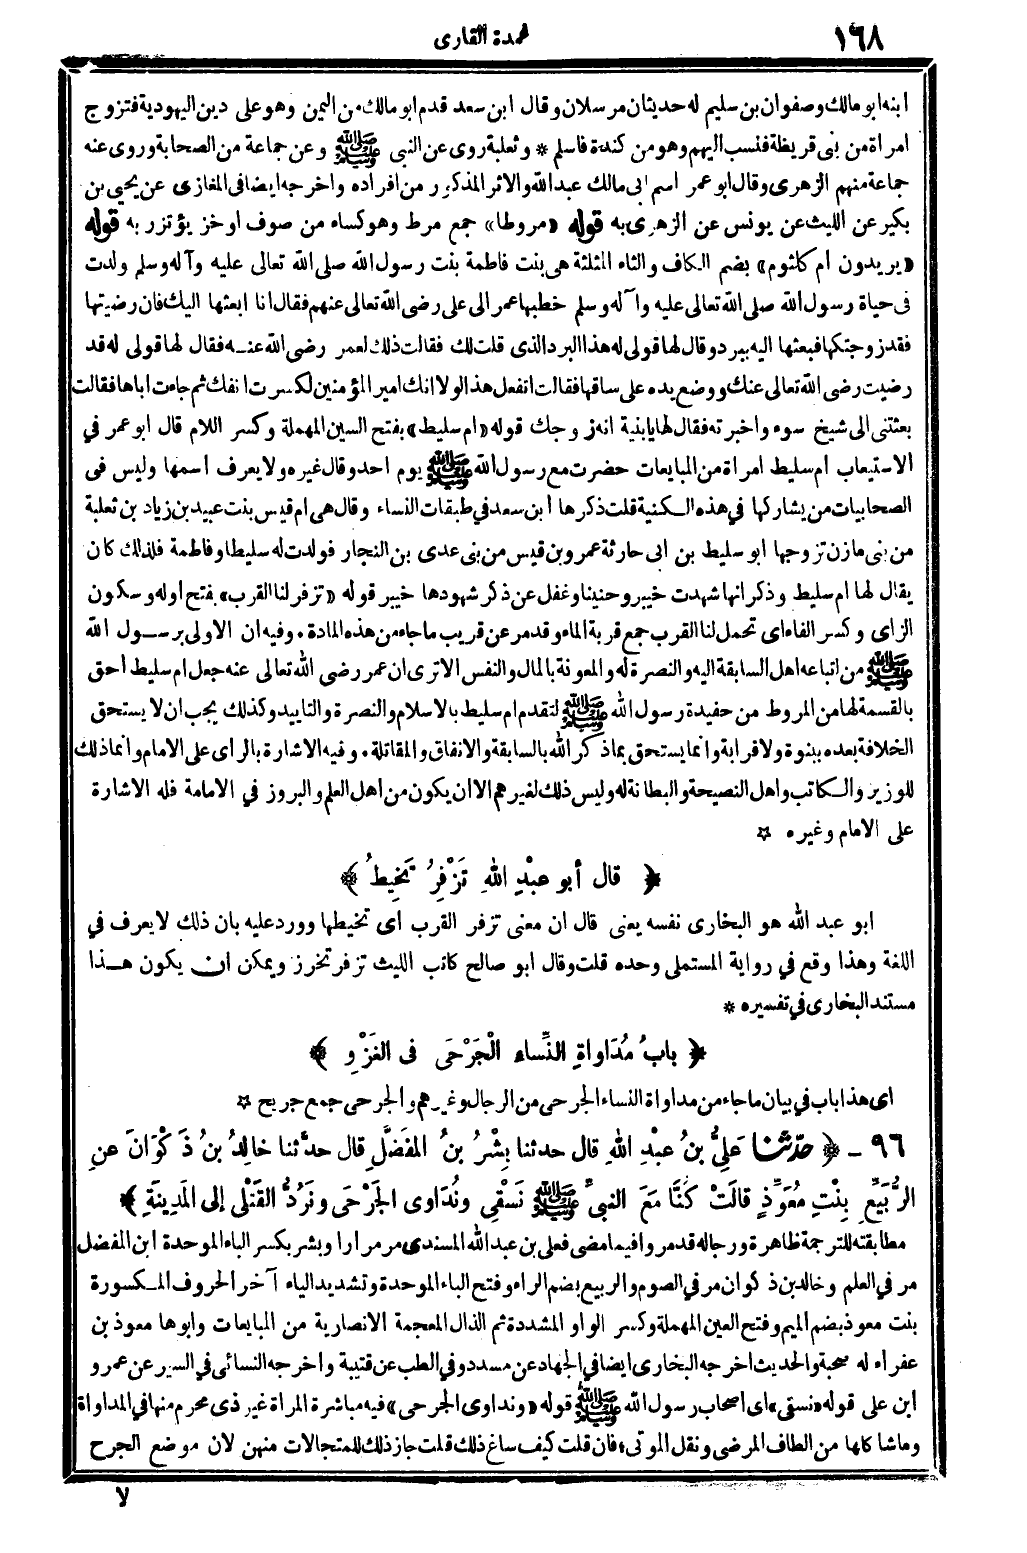 ١٦٨
عمدة القارى
ابنه ابو مالك وصفوان بن سليم له حديثان مرسلان وقال ابن سعد قدم ابو مالك من اليمن وهو على دين اليهودية فتزوج
امرأة من بنى قريظة فنسب اليهم وهو من كندة فاسلم * وثعلبة روى عن النبى ﷺ وعن جماعة من الصحابة وروى عنه
جماعة منهم الزهرى وقال ابو عمر اسم ابى مالك عبد الله والاثر المذكور من افراده واخرجه ايضا فى المغازى عن يحيى بن
بكير عن الليث عن يونس عن الزهرى به قوله «مروطا» جمع مرط وهو كساء من صوف او خز يؤتزر به قوله
«يريدون ام كلثوم» بضم الكاف والثاء المثلثة هى بنت فاطمة بنت رسول الله صلى الله تعالى عليه وآله وسلم ولدت
فى حياة رسول الله صلى الله تعالى عليه وآله وسلم خطبها عمر الى على رضى الله تعالى عنهم فقال انا ابعثها اليك فان رضيتها
فقد زوجتكها فبعثها اليه ببرد وقال لها قولى له هذا البرد الذى قلت لك فقالت ذلك لعمر رضى الله عنه فقال لها قولى له قد
رضيت رضى الله تعالى عنك ووضع يده على ساقها فقالت اتفعل هذا لولا انك امير المؤمنين لكسرت انفك ثم جاءت اباها فقالت
بعثتنى الى شيخ سوء واخبرته فقال لها يابنية انه زوجك قوله «ام سليط» بفتح السين المهملة وكسر اللام قال ابو عمر فى
الاستيعاب ام سليط امرأة من المبايعات حضرت مع رسول الله ﷺ يوم احد وقال غيره ولا يعرف اسمها وليس فى
الصحابيات من يشاركها فى هذه الكنية قلت ذكرها ابن سعد فى طبقات النساء وقال هى ام قيس بنت عبيد بن زياد بن ثعلبة
من بنى مازن تزوجها ابو سليط بن ابى حارثة عمرو بن قيس من بنى عدى بن النجار فولدت له سليطا وفاطمة فلذلك كان
يقال لها ام سليط وذكر انها شهدت خيبر وحنينا وغفل عن ذكر شهودها خيبر قوله «تزفر لنا القرب» بفتح اوله وسكون
الزاى وكسر الفاء اى تحمل لنا القرب جمع قربة الماء وقد مر عن قريب ما جاء من هذه المادة . وفيه ان الاولى برسول الله
ﷺ من اتباعه اهل السابقة اليه والنصرة له والمعونة بالمال والنفس الا ترى ان عمر رضى الله تعالى عنه جعل ام سليط أحق
بالقسمة لها من المروط من حفيدة رسول الله ﷺ لتقدم ام سليط بالاسلام والنصرة والتاييد وكذلك يجب ان لا يستحق
الخلافة بعده ببنوة ولا قرابة وانما يستحق بما ذكر الله بالسابقة والانفاق والمقاتلة . وفيه الاشارة بالراى على الامام وانما ذلك
للوزير والكاتب واهل النصيحة والبطانة له وليس ذلك لغيرهم الا ان يكون من اهل العلم والبروز في الامامة فله الاشارة
على الامام وغيره ☆
﴿ قال أبو عبْدِ اللهِ تَزْفِرُ تَخِيطُ ﴾
ابو عبد الله هو البخارى نفسه يعنى قال ان معنى تزفر القرب اى تخيطها وورد عليه بان ذلك لا يعرف في
اللغة وهذا وقع في رواية المستملى وحده قلت وقال ابو صالح كاتب الليث تزفر تخرز ويمكن ان يكون هذا
مستند البخارى في تفسيره *
﴿ بابُ مُدَاواةِ النِّساء الْجَرْحَى فى الغَزْوِ ﴾
اى هذا باب في بيان ما جاء من مداواة النساء الجرحى من الرجال وغيرهم والجرحى جمع جريح ☆
٩٦ - ﴿ حَدَّثَنا عَلِيُّ بنُ عبْدِ اللهِ قال حدثنا بِشْرُ بنُ المُفَضَّلِ قال حدَّثنا خالِدُ بنُ ذَكْوَانَ عنِ
الرُّبَيِّعِ بِنْتِ مُعَوِّذٍ قالَتْ كُنَّا مَعَ النبىِّ ﷺ نَسْقِى ونُدَاوى الجَرْحَى ونَرُدُّ القَتْلَى إلى المَدِينَةِ ﴾
مطابقته للترجمة ظاهرة ورجاله قد مروا فيما مضى فعلى بن عبد الله المسندى مر مرارا وبشر بكسر الباء الموحدة ابن المفضل
مر في العلم وخالد بن ذكوان مر في الصوم والربيع بضم الراء وفتح الباء الموحدة وتشديد الياء آخر الحروف المكسورة
بنت معوذ بضم الميم وفتح العين المهملة وكسر الواو المشددة ثم الذال المعجمة الانصارية من المبايعات وابوها معوذ بن
عفراء له صحبة والحديث اخرجه البخارى ايضا في الجهاد عن مسدد وفي الطب عن قتيبة واخرجه النسائى في السير عن عمرو
ابن على قوله «نسقى» اى اصحاب رسول الله ﷺ قوله «ونداوى الجرحى» فيه مباشرة المرأة غير ذى محرم منها في المداواة
وما شاكلها من الطاف المرضى ونقل الموتى ؛ فان قلت كيف ساغ ذلك قلت جاز ذلك للمتجالات منهن لان موضع الجرح
لا